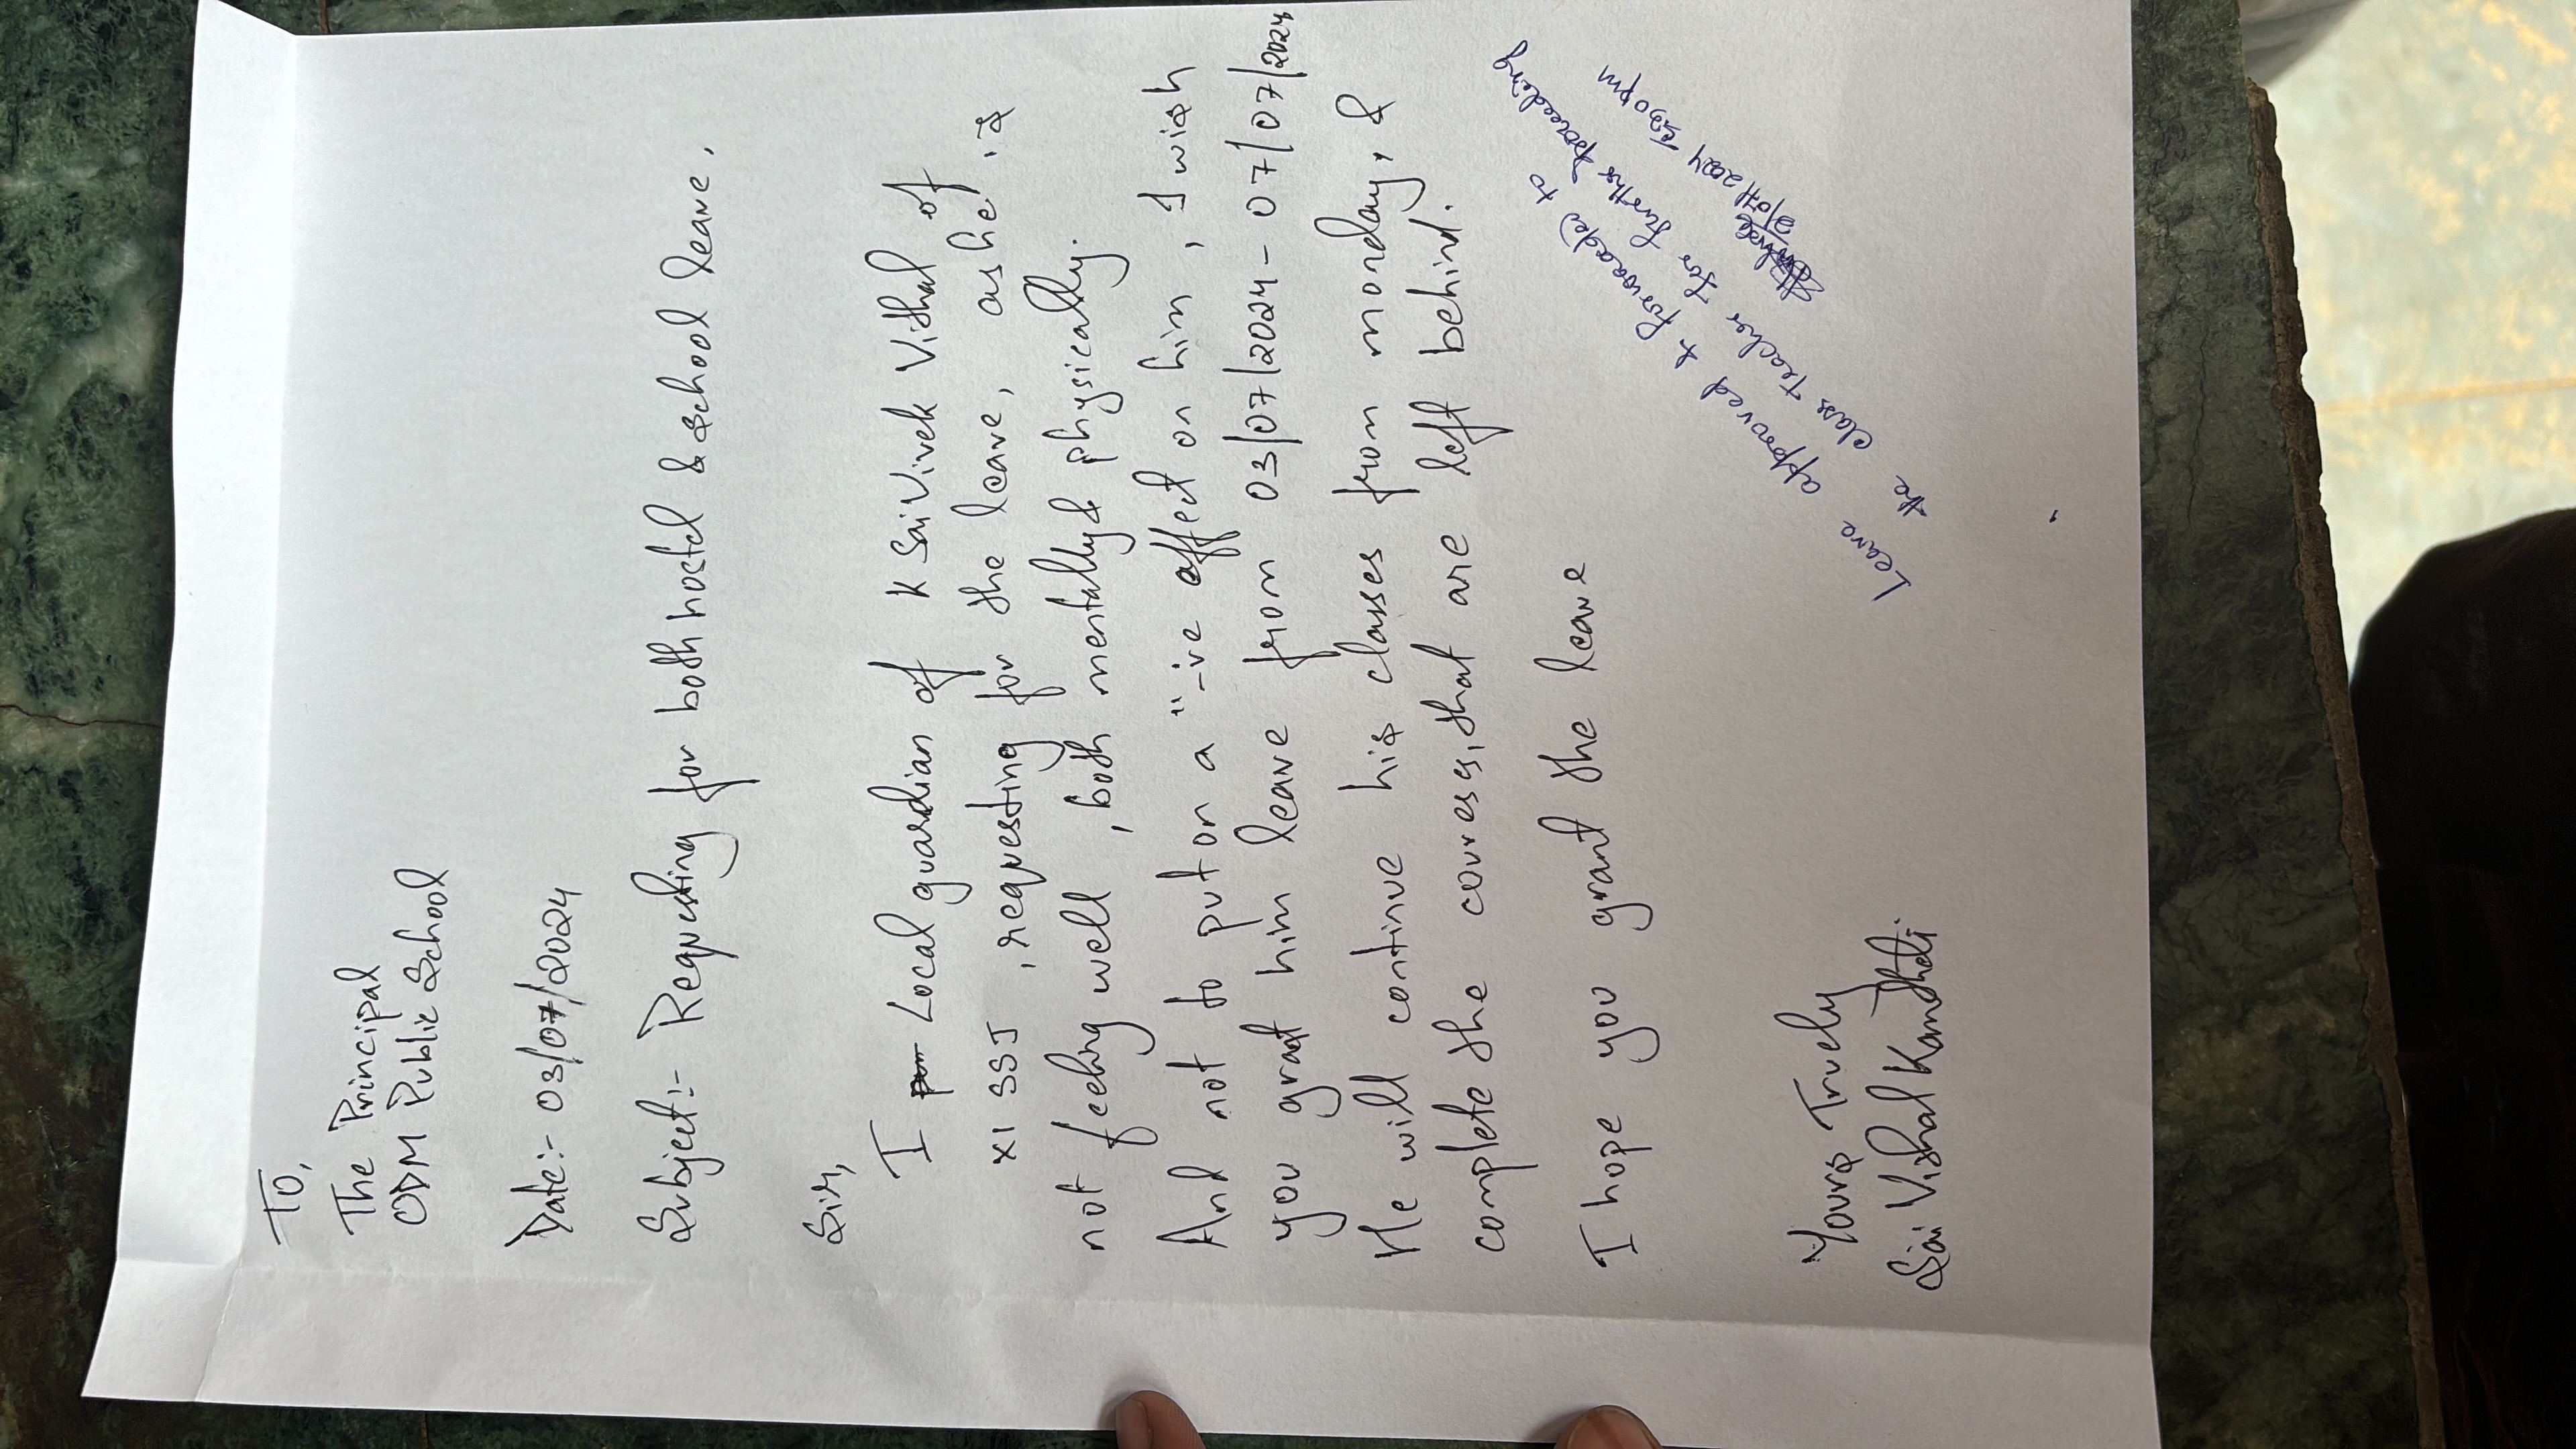 To,
The Principal
ODM Public School
Date:- 03/07/2024
Subject:- Requesting for both hostel & school leave.
Sir,
I Local guardian of K Sai Vivek Vithal of
XI SSJ, requesting for the leave, as he is
not feeling well, both mentally & physically.
And not to put on a "-ive affect on him, I wish
you grant him leave from 03/07/2024 - 07/07/2024
He will continue his classes from monday, &
complete the courses, that are left behind.
I hope you grant the leave
Yours Truely
Sai Vishal Kandheti.
Leave approved & forwaaded to
the class teacher for further proceeding
2/07/2024 5:30 pm